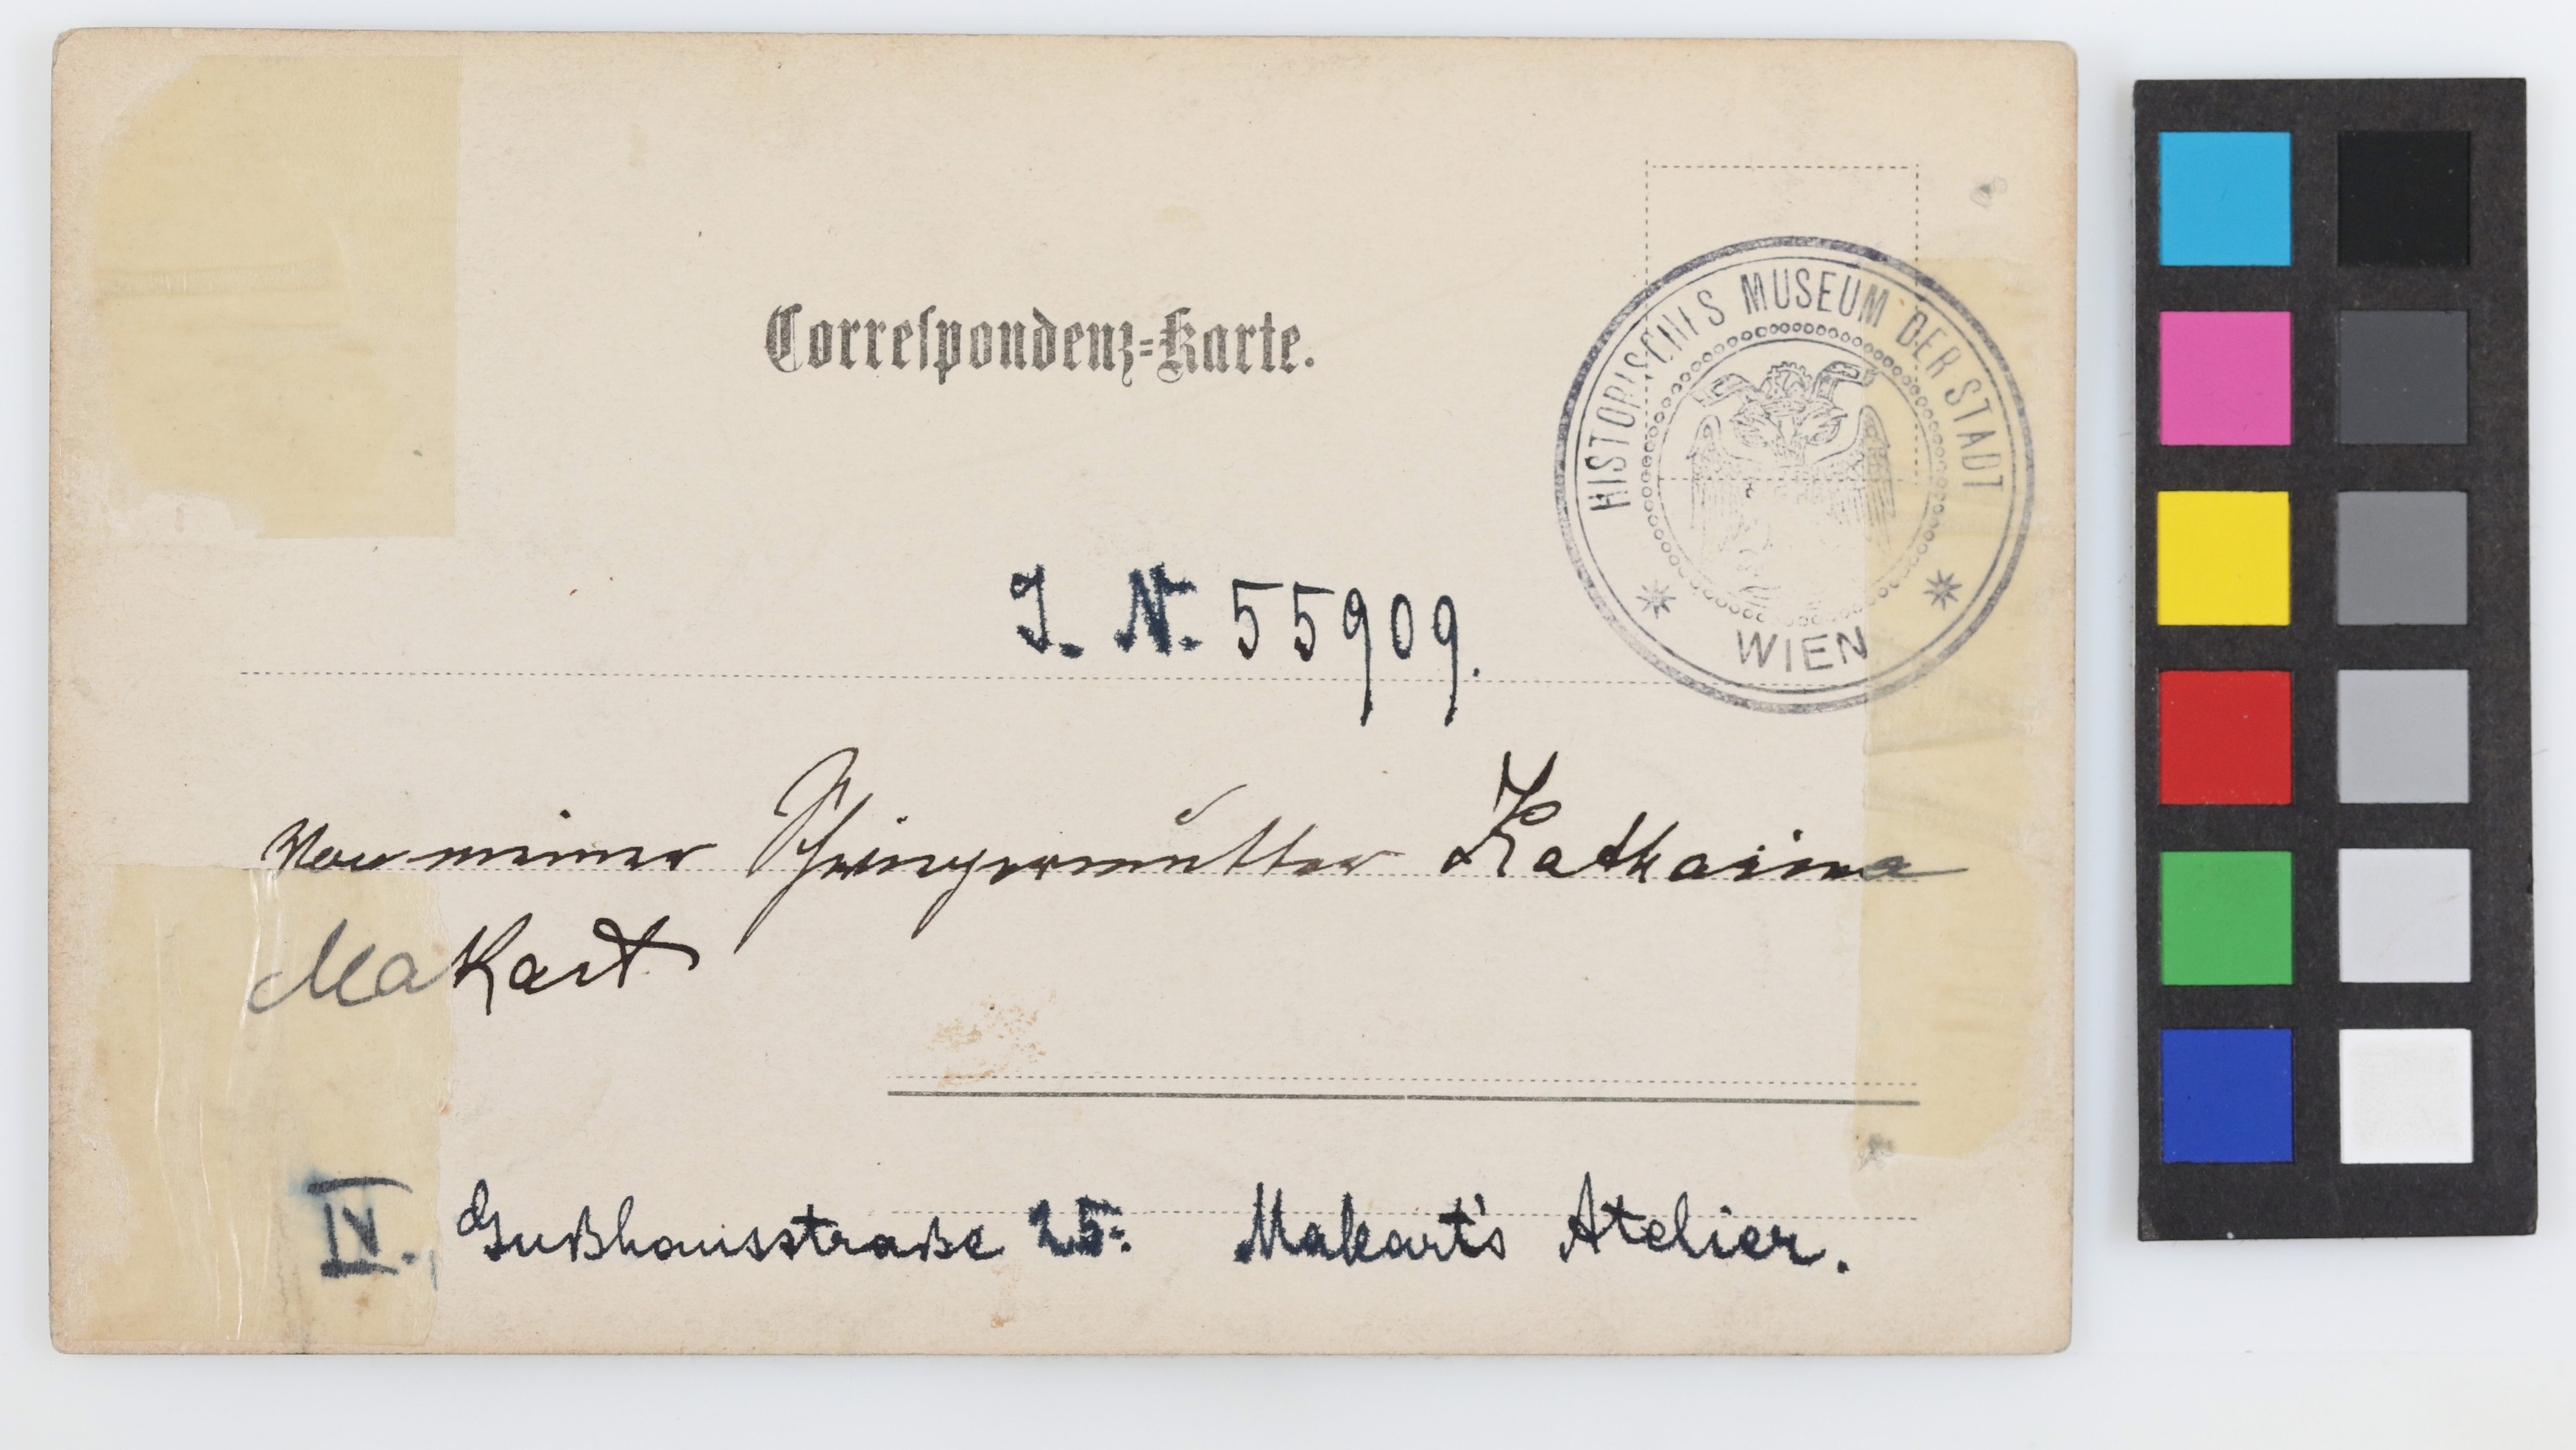 Correſpondenz=Karte.
HISTORISCHES MUSEUM DER STADT
WIEN
J. N. 55909.
Von meiner Schwiegermutter Katharina
Makart
IV., Gußhausstraße 25. Makart's Atelier.